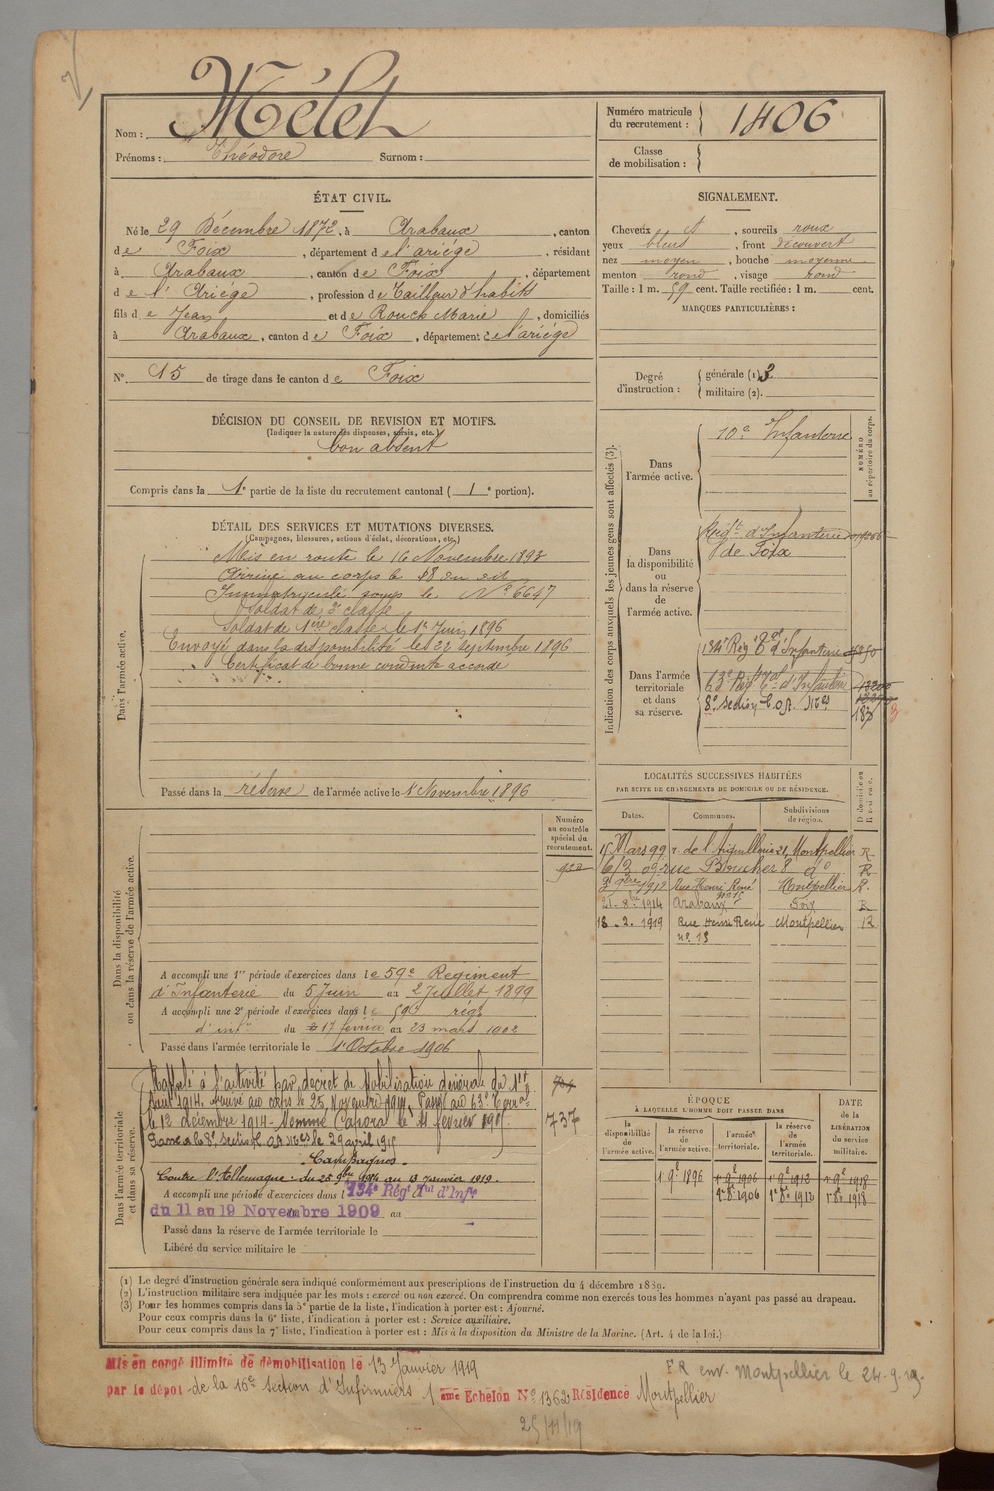 Nom : Mélet
Prénoms : Théodore Surnom :
Numéro matricule du recrutement : 1406
Classe de mobilisation :
ÉTAT CIVIL.
Né le 29 Décembre 1872, à Arabaux, canton
de Foix, département de l'ariége, résidant
à Arabaux, canton de Foix, département
de l'Ariége, profession de Tailleur d'habits
fils de Jean et de Rouch Marie, domiciliés
à Arabaux, canton de Foix, département de l'ariége
N° 15 de tirage dans le canton de Foix
SIGNALEMENT.
Cheveux et, sourcils roux
yeux bleus, front découvert
nez moyen, bouche moyenne
menton rond, visage rond
Taille : 1 m. 59 cent. Taille rectifiée : 1 m. cent.
MARQUES PARTICULIÈRES :
Degré d'instruction : générale (1) 3
militaire (2).
DÉCISION DU CONSEIL DE REVISION ET MOTIFS.
(Indiquer la nature des dispenses, sursis, etc.)
bon absent
Compris dans la 1e partie de la liste du recrutement cantonal ( 1e portion).
DÉTAIL DES SERVICES ET MUTATIONS DIVERSES.
(Campagnes, blessures, actions d'éclat, décorations, etc.)
Dans l'armée active.
Mis en route le 16 Novembre 1893
Arrivé au corps le 18 du dit
Immatriculé sous le N° 6647
Soldat de 2e classe
Soldat de 1ère classe le 1er Juin 1896
Envoyé dans la disponibilité le 22 septembre 1896
Certificat de bonne conduite accordé
Passé dans la réserve de l'armée active le 1er Novembre 1896
Indication des corps auxquels les jeunes gens sont affectés (3).
NUMÉRO au répertoire du corps.
Dans l'armée active.
10e Infanterie
Dans la disponibilité ou dans la réserve de l'armée active.
Régt d'Infanterie
de Foix
Dans l'armée territoriale et dans sa réserve.
134e Rég t al d'Infanterie
63e Rég t al d'Infanterie
8e section C.O.A. Mres
LOCALITÉS SUCCESSIVES HABITÉES
PAR SUITE DE CHANGEMENTS DE DOMICILE OU DE RÉSIDENCE.
Dates. Communes. Subdivisions de région. D domicile ou R résidence.
15 Mars 99 r. de l'Aiguillerie 21, Montpellier R
6/3 09 rue Boucher 8 do R
1912 Rue Henri René n° 15 Montpellier R.
21-8-1914 Arabaux Foix R
18-2-1919 Rue Henri René n° 15 Montpellier R
Dans la disponibilité ou dans la réserve de l'armée active.
Numéro au contrôle spécial du recrutement.
A accompli une 1re période d'exercices dans le 59e Régiment
d'Infanterie du 5 Juin au 2 Juillet 1899
A accompli une 2e période d'exercices dans le 59e régt
d'inf du 17 février au 23 mars 1902
Passé dans l'armée territoriale le 1er Octobre 1906
Dans l'armée territoriale et dans sa réserve.
Rappelé à l'activité par décret de Mobilisation Générale du 1er
Août 1914. Arrivé au corps le 25 Novembre 1914. Passé au 63e Terral
le 12 décembre 1914. Nommé Caporal le 11 février 1915.
Passé à la 8e section C.O.A. Mres le 29 avril 1915
737
Campagnes.
Contre l'Allemagne : du 25 9bre 1914 au 13 Janvier 1919.
A accompli une période d'exercices dans l 134e Régt Tal d'Infie
du 11 au 19 Novembre 1909 au
Passé dans la réserve de l'armée territoriale le
Libéré du service militaire le
ÉPOQUE
À LAQUELLE L'HOMME DOIT PASSER DANS
DATE de la LIBÉRATION du service militaire.
la disponibilité de l'armée active. la réserve de l'armée active. l'armée territoriale. la réserve de l'armée territoriale.
1 9e 1896 1 9e 1906 1 9e 1912 1 9e 1918
1er 8e 1906 1er 8e 1912 1er 8e 1918
(1) Le degré d'instruction générale sera indiqué conformément aux prescriptions de l'instruction du 4 décembre 1889.
(2) L'instruction militaire sera indiquée par les mots : exercé ou non exercé. On comprendra comme non exercés tous les hommes n'ayant pas passé au drapeau.
(3) Pour les hommes compris dans la 5e partie de la liste, l'indication à porter est : Ajourné.
Pour ceux compris dans la 6e liste, l'indication à porter est : Service auxiliaire.
Pour ceux compris dans la 7e liste, l'indication à porter est : Mis à la disposition du Ministre de la Marine. (Art. 4 de la loi.)
Mis en congé illimité de démobilisation le 13 Janvier 1919
par le dépôt de la 16e section d'Infirmiers 1 ème Echelon N° 1362 Résidence Montpellier
F R env. Montpellier le 24-9-19.
25/11/19